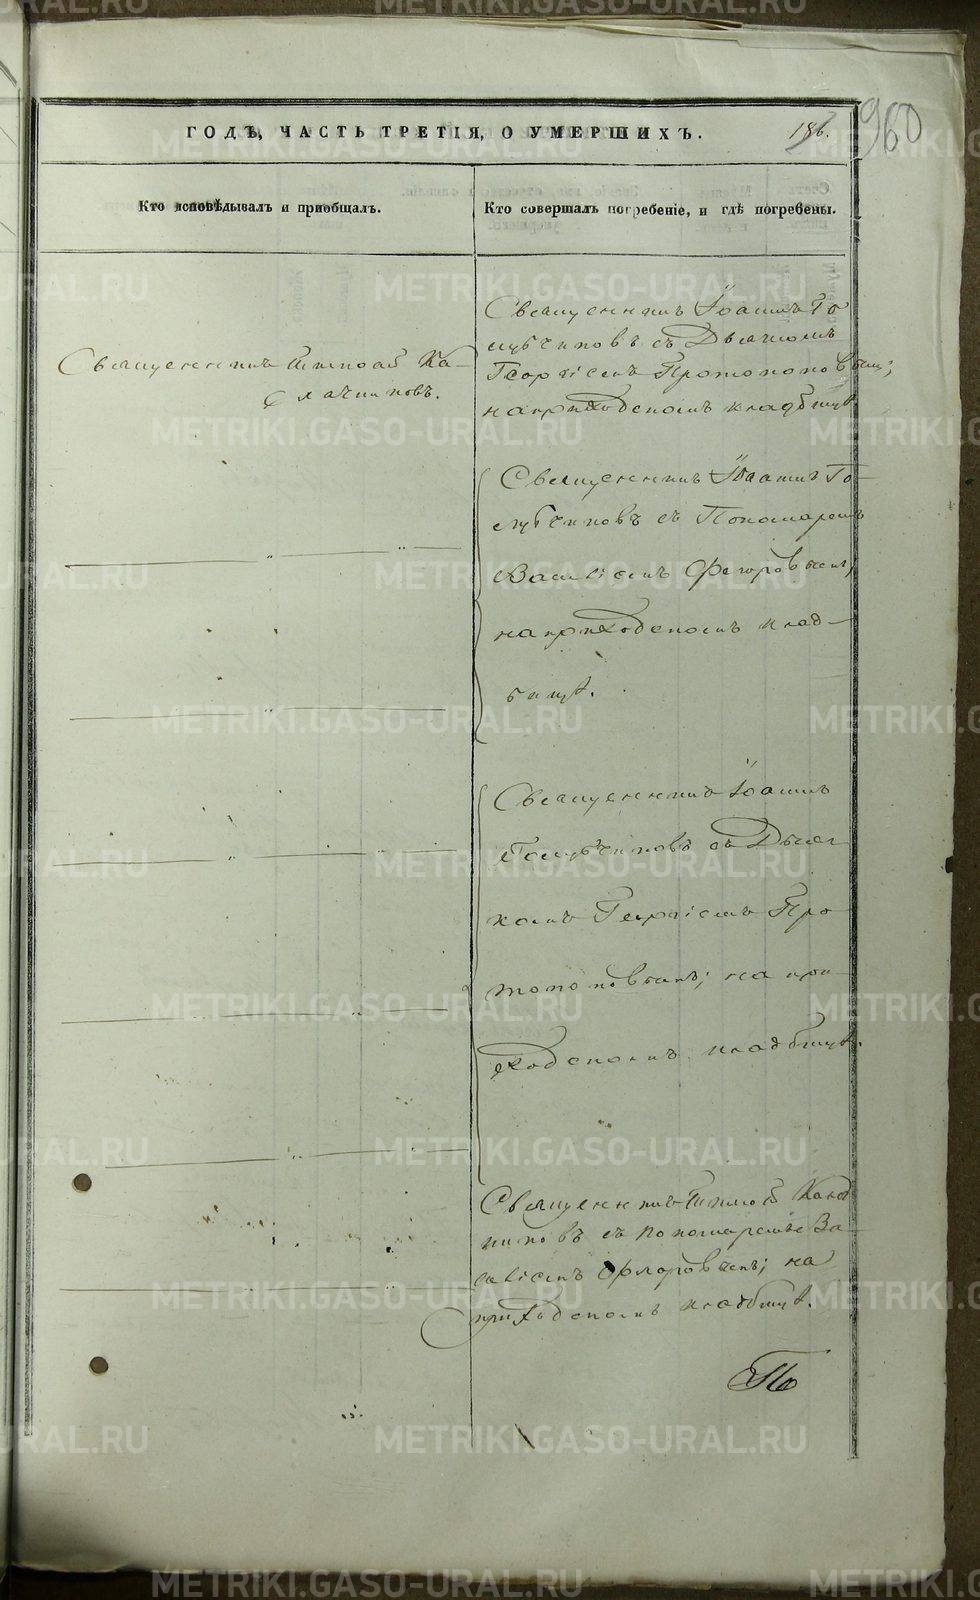 ГОДѢ, ЧАСТЬ ТРЕТІЯ, О УМЕРШИХЪ.
960
Кто исповѣдывалъ и пріобщалъ.
Кто совершалъ погребеніе, и гдѣ погребены.
Священникъ Тимоѳей Ка-
лачниковъ.
Священникъ Іоаннъ Го
лубчиковъ съ Дьякомъ
Георгіемъ Протопоповымъ;
на приходскомъ кладбищѣ.
Священникъ Іоаннъ Го-
лубчиковъ съ Пономаремъ
Василіемъ Флоровымъ,
на приходскомъ клад-
бищѣ.
Священникъ Іоаннъ
Голубчиковъ съ Дьяч
комъ Георгіемъ Про
топоповымъ; на при-
ходскомъ кладбищѣ.
Священникъ Тимоѳей Калач
никовъ съ Пономаремъ Ва
силіемъ Флоровымъ; на
приходскомъ кладбищѣ.
METRIKI.GASO-URAL.RU